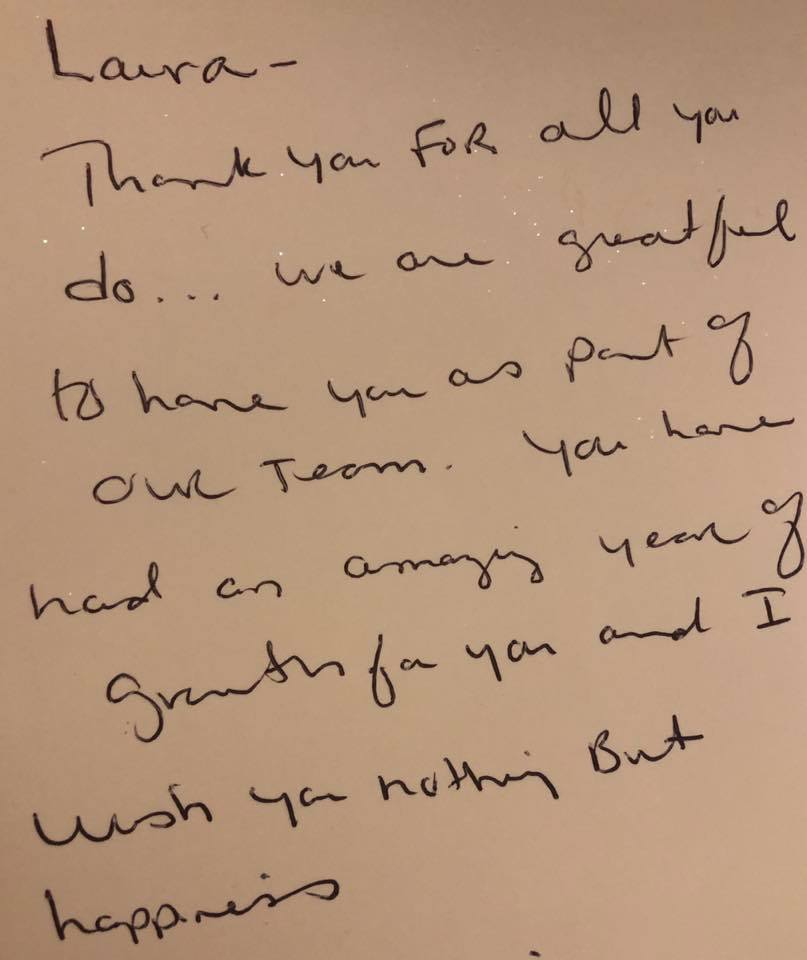 Laura-
Thank you FOR all you
do... we are greatful
to have you as part of
OUR Team. You have
had an amazing year of
Growth for you and I
wish you nothing But
happiness